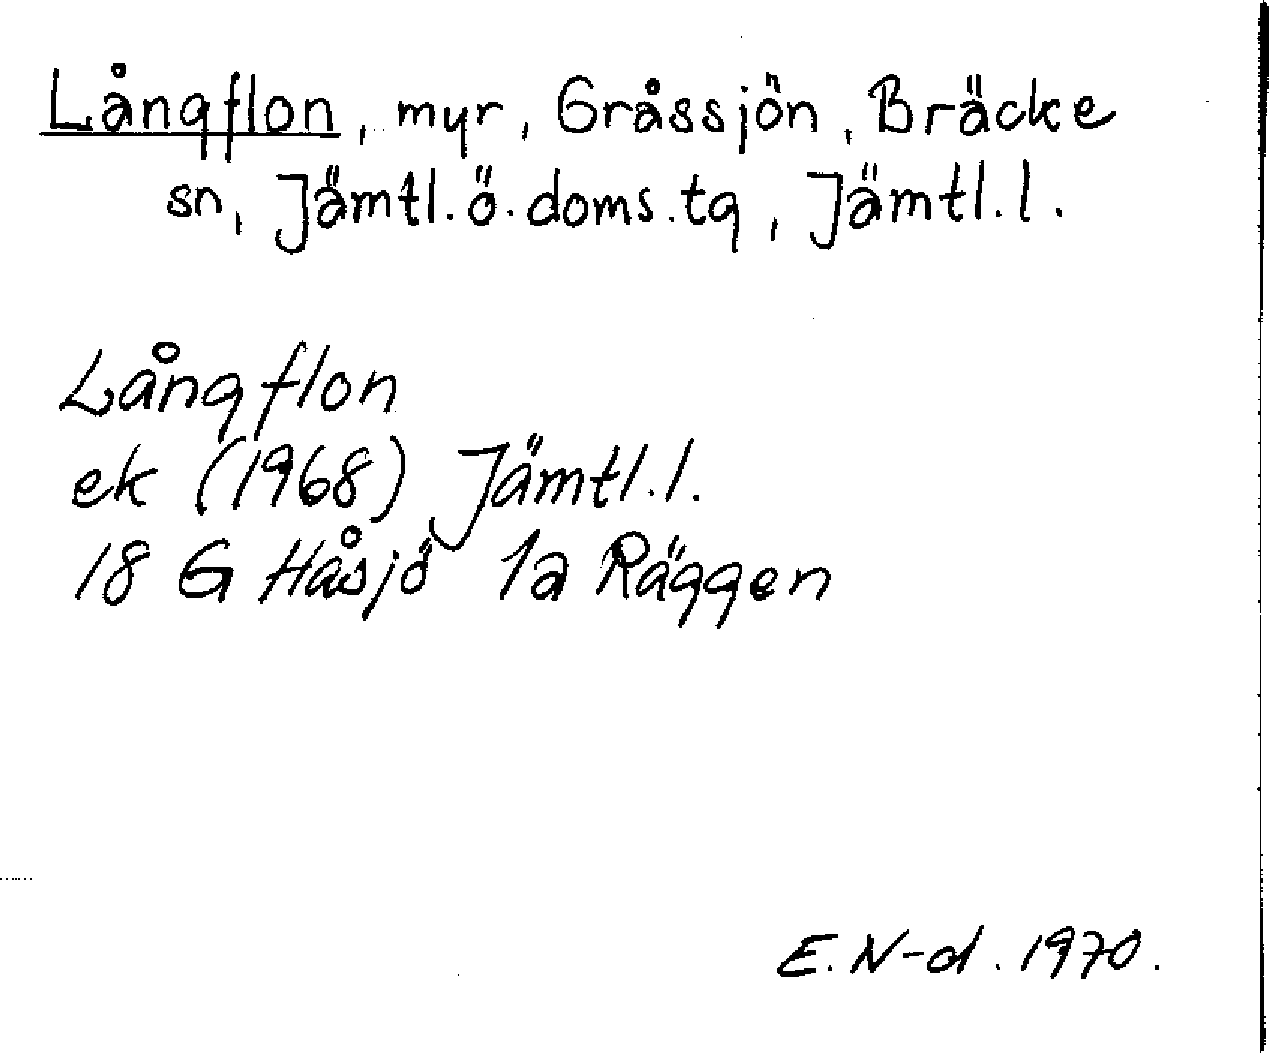 Långflon, myr, Gråssjön, Bräcke
sn, Jämtl.ö.doms.tg, Jämtl.l.
Långflon
ek (1968) Jämtl.l.
18 G Håsjö 1a Räggen
E. N-d. 1970.